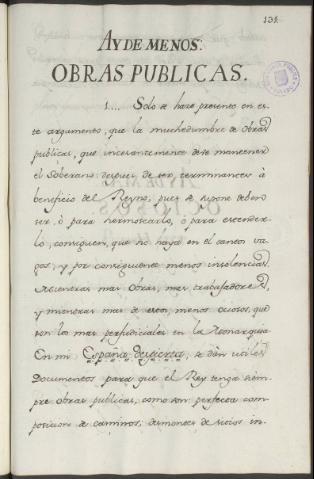 131.
AY DE MENOS:
OBRAS PUBLICAS.
1.... Solo se hace presente en es-
te argumento, que la muchedumbre de obras
publicas, que incesantemente debe mantener
el Soberano despues de ser, terminantes à
beneficio del Reyno, pues se supone deben
ser, ò para hermosearlo, ò para extender-
lo, consiguen, que no haya en el tantos va-
gos, y por consiguiente menos insolencias.
Mientras mas obras, mas trabajadores,
y mientras mas de estos, menos ociosos, que
son los mas perjudiciales en la Monarquia
En mi España despierta, se dàn utiles
Documentos para que el Rey tenga siem-
pre obras publicas, como son perfecta com-
posicion de caminos; desmontes de sitios in-